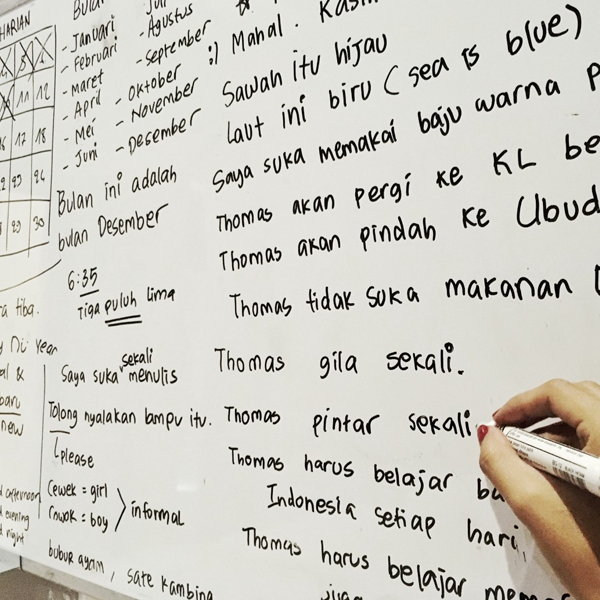 HARIAN
11 12
17 18
29 30
Bulan
- Januari
- Februari
- maret
- April
- Mei
- Juni
- Agustus
- September
- Oktober
- November
- Desember
Bulan ini adalah
bulan Desember
6:35
Tiga puluh lima
tiba.
year
Saya suka sekali menulis
Tolong nyalakan lampu itu.
please
Cewek = girl
Cowok = boy
informal
new
afternoon
evening
night
bubur ayam, sate kambing
:) Mahal.
Sawah itu hijau
Laut ini biru (sea is blue)
Saya suka memakai baju warna
Thomas akan pergi ke KL
Thomas akan pindah ke Ubud
Thomas tidak suka makanan
Thomas gila sekali.
Thomas pintar sekali.
Thomas harus belajar
Indonesia setiap hari,
Thomas harus belajar